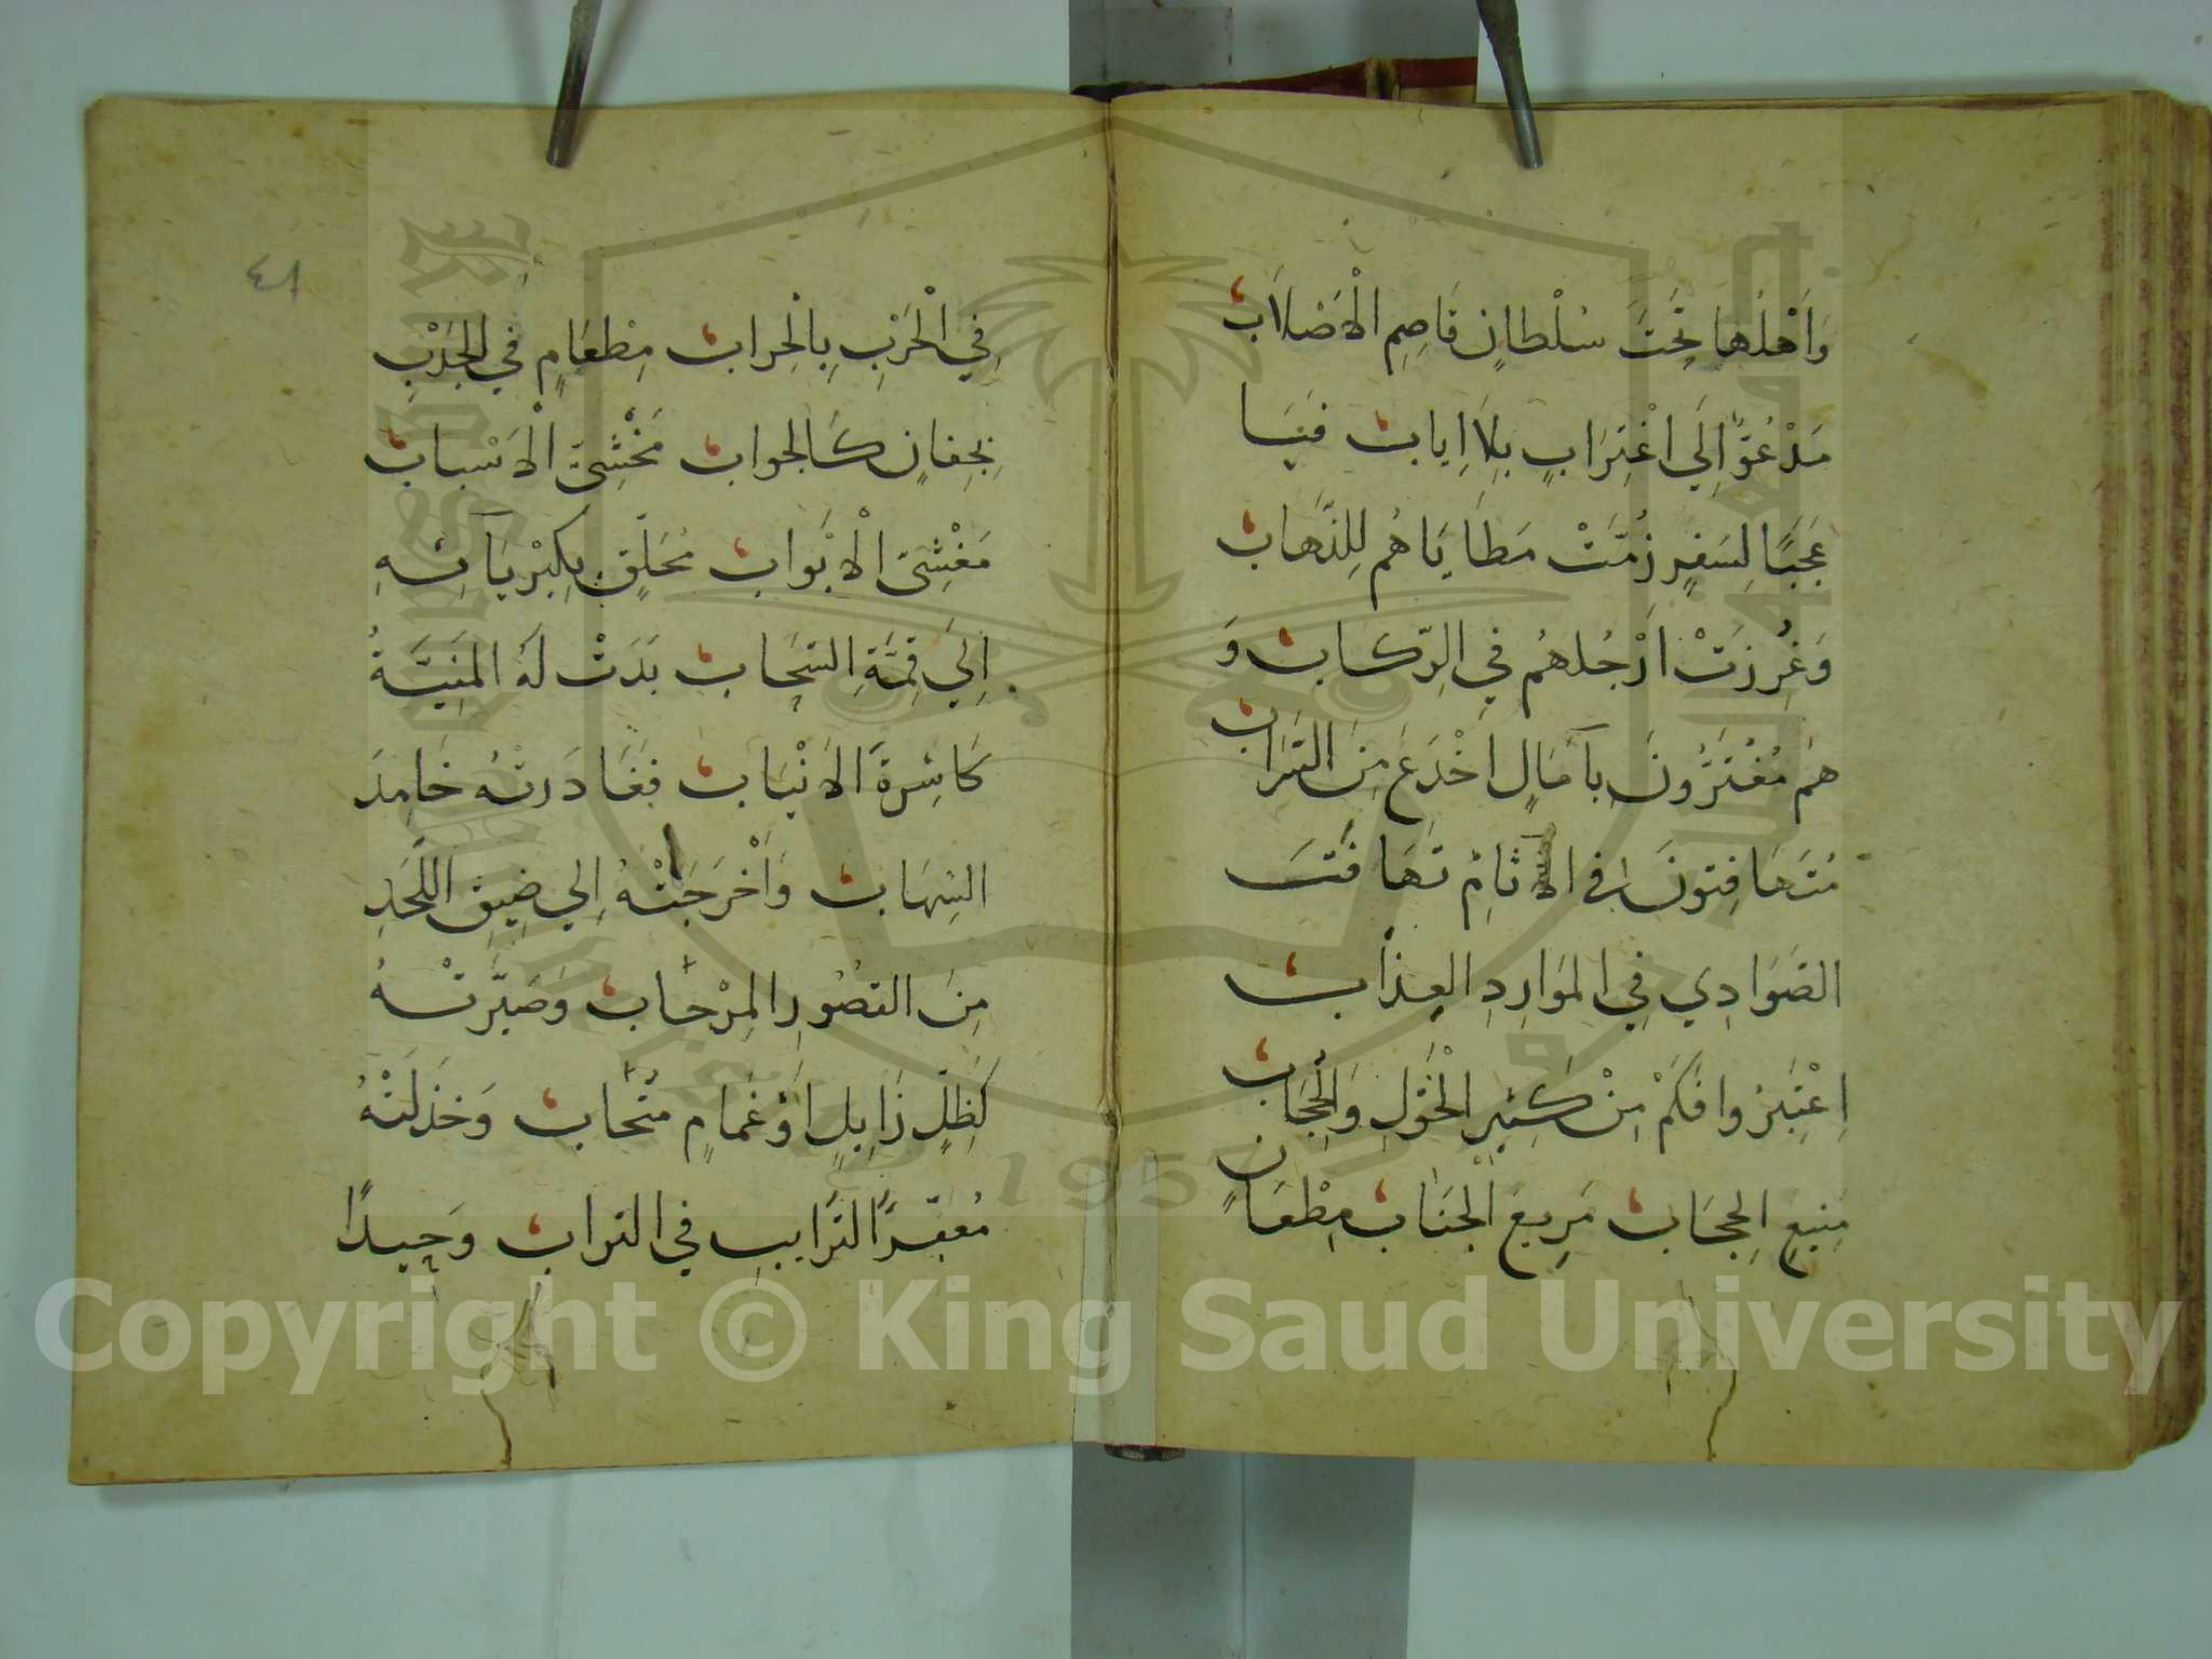 وَاَهْلُهَا تَحْتَ سُلْطَانٍ قَاصِمِ الْاَصْلَابِ
مَدْعُوٍّ اِلَي اغْتِرَابٍ بِلَا اِيابٍ فَيَا
عَجَبًا لِسَفْرٍ زُمَّتْ مَطَايَاهُم لِلذَّهَابِ
وَغُرِزَتْ اَرْجُلُهُم فِي الرِّكَابِ وَ
هُم مُغْتَرُّونَ بِآمَالٍ اَخْدَعَ مِنَ السَّرَابِ
مُتَهَافِتونَ فى الاثامِ تَهَافُتَ
الصَوَادِي فِي الموَارِدِ العِذَابِ
اِعْتَبِرُوا فَكَمْ مِنْ كَثِيرِ الْخَوَلِ وَالْحُجَّابِ
مَنِيعِ الحِجَابِ مَرِيعِ الْجَنَابِ مِطْعَانٍ
٤٨
فِي الْحَرْبِ بِالْحِرابِ مِطْعَامٍ فِي الْجَدْبِ
بِجِفانٍ كَالجوابِ مَخْشِىِّ الْاَسْبابِ
مَغْشِىِّ الْاَبْوابِ مُحَلِّقٍ بِكِبْرِيَآئِهِ
اِلَي قِمَّةِ السَّحَابِ بَدَتْ لَهُ المَنِيَّةُ
كَاشِرَةَ الاَنْيَابِ فَغَادَرتْهُ خَامِدَ
الشِهَابِ وَاَخْرَجَتْهُ اِلي ضِيقِ اللَّحْدِ
مِنَ القصُورِ الرِحَابِ وَصَيَّرَتْهُ
كَظِلٍّ زَايِلٍ اَوْ غَمامٍ مُنْجَابٍ وَخَذَلَتْهُ
مُعَفَّرَ التَرَايبِ فِي الترابِ وَحِيدًا
Copyright © King Saud University
1957